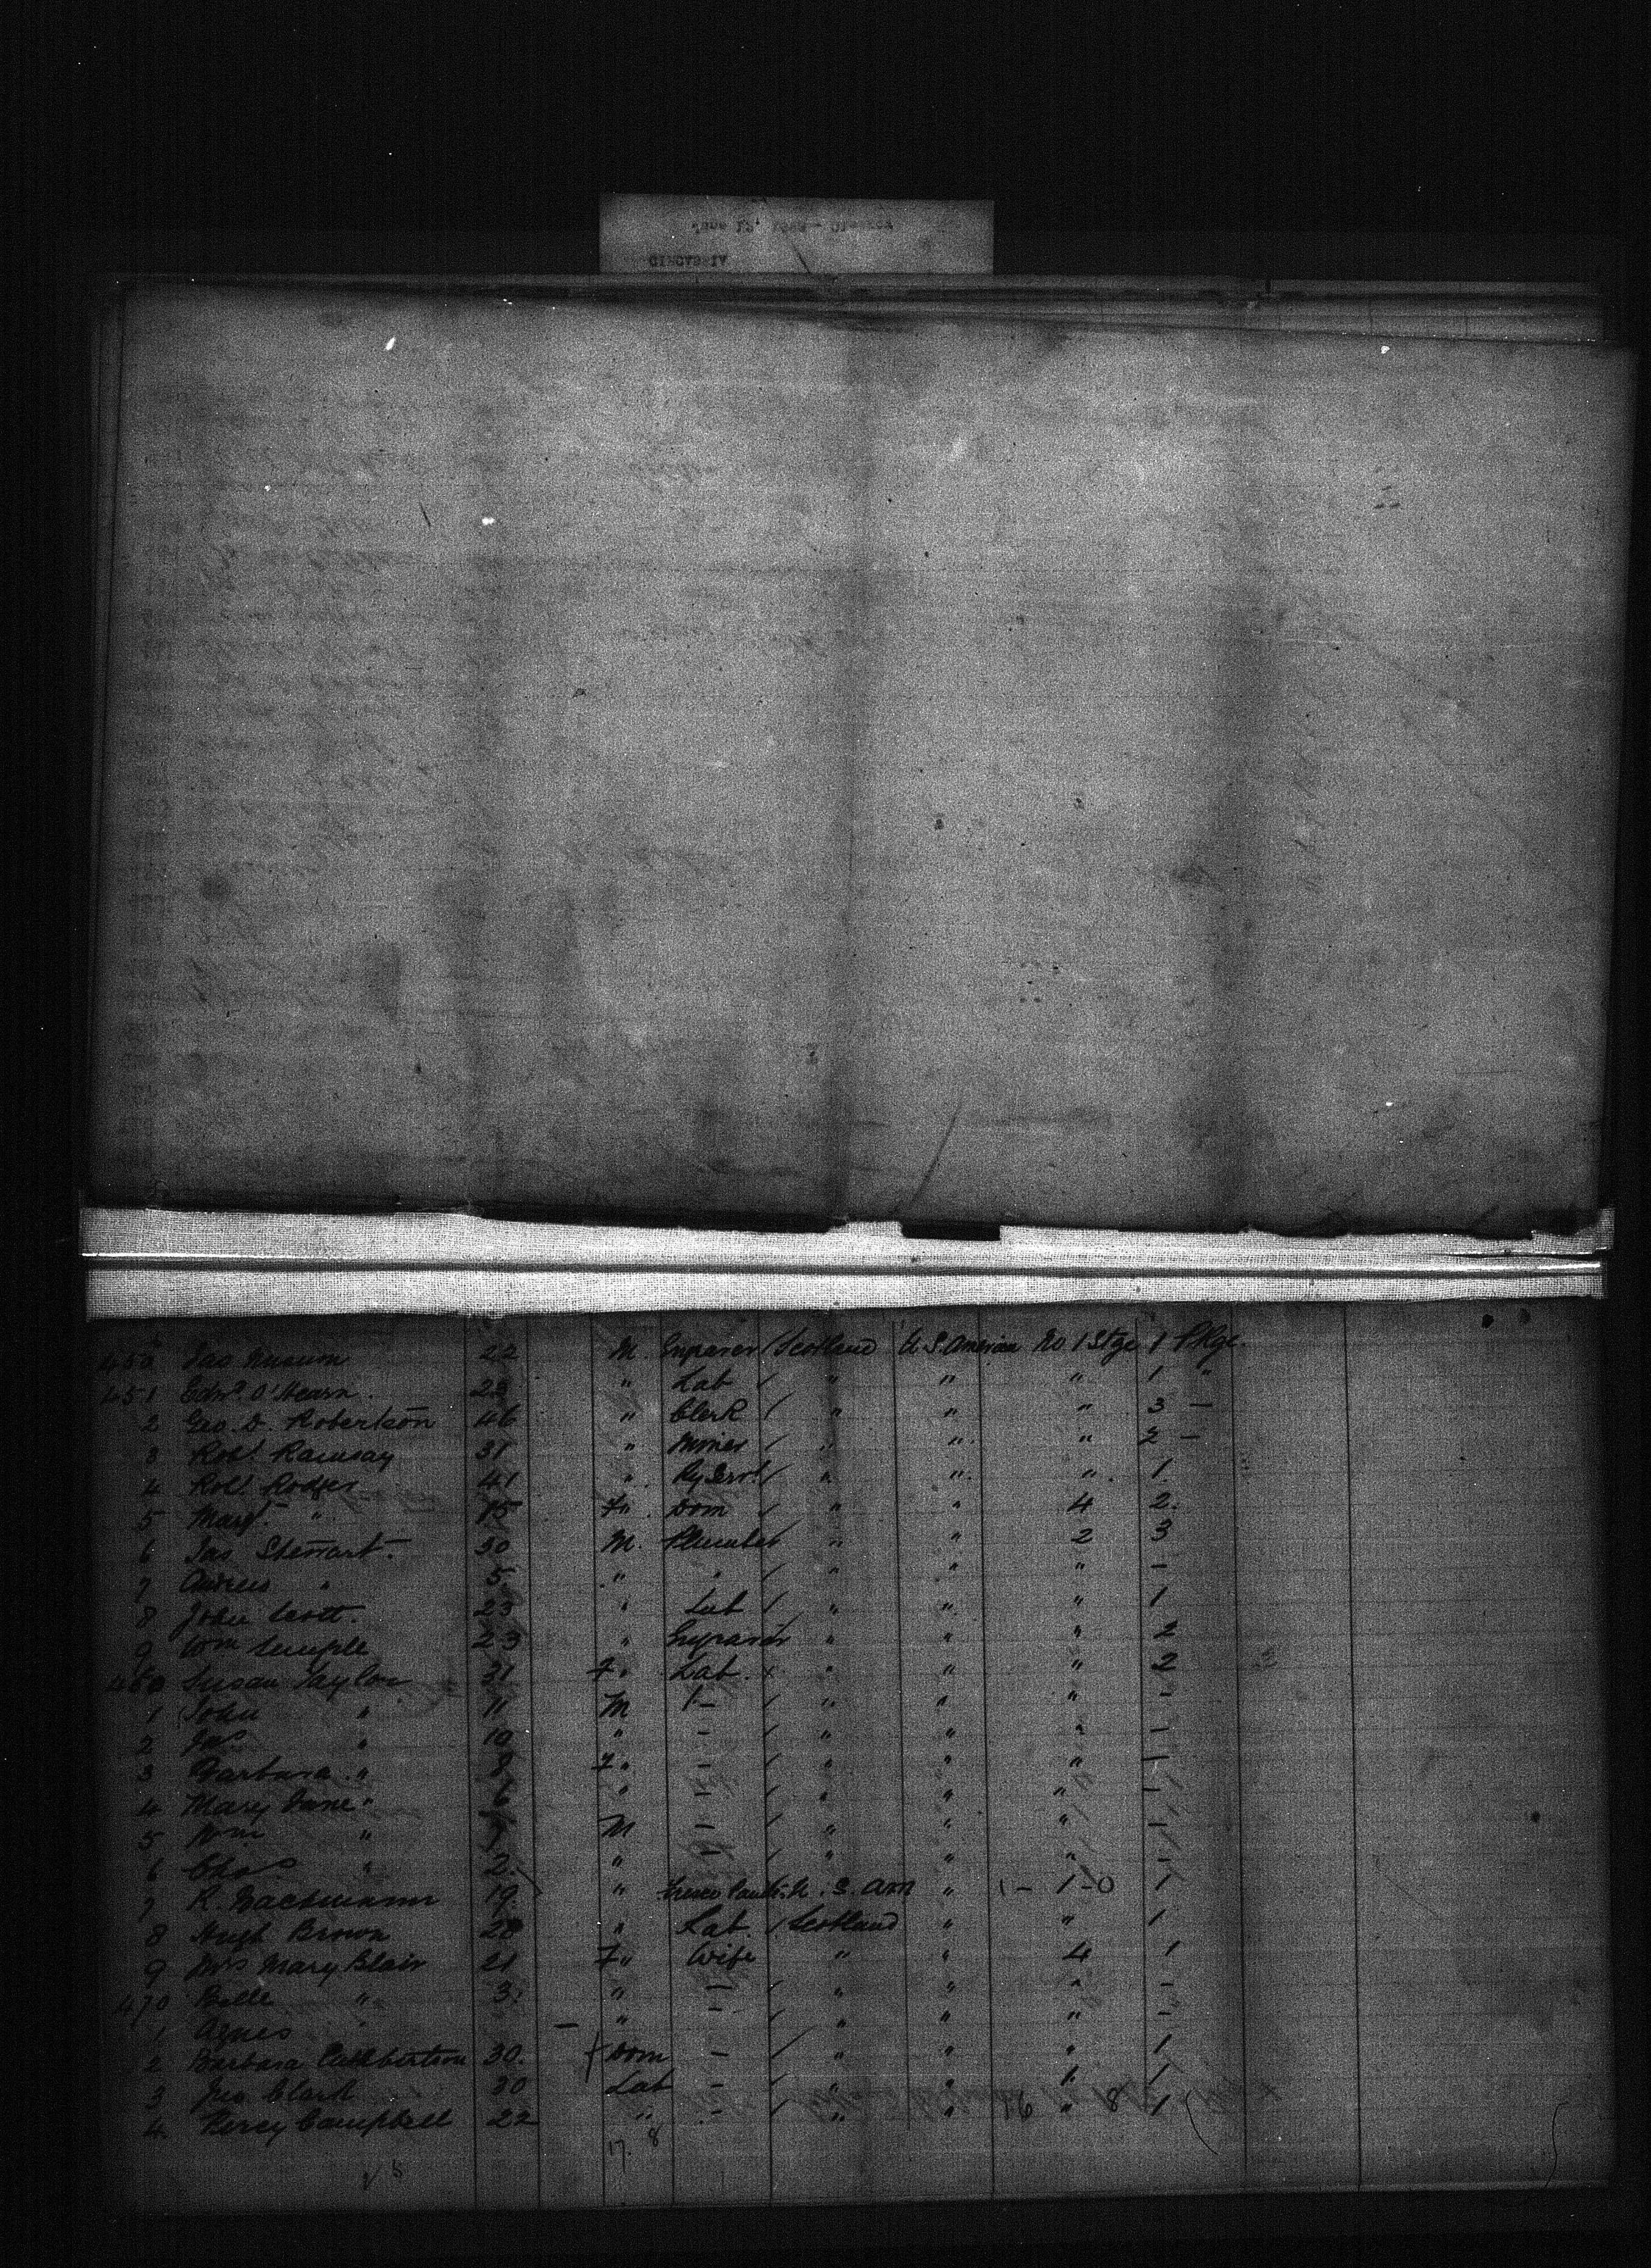 CIRCASSIA
450 Jas 22 M. Engraver / Scotland U.S. American No. 1 Stge 1 Pkge.
451 Edwd. O'Hearn. " Lab / " " " 1 "
2 Geo. D. Robertson 46 " Clerk / " " " 3 -
3 Robt. Ramsay 31 " Miner / " " " 2 -
4 Robt. Rodger 41 " Ry Servt / " " " 1
5 Margt. " 15 F " Dom / " " 4 2.
6 Jas Stewart. 30 M. Plumber " " 2 3
7 Andrew " 5 " " / " " " -
8 John Scott. 23 " Lab / " " " 1
9 Wm Semple 23 " Engraver " " " 2
460 Susan Taylor 31 F " Lab. " " " 2
1 John " 11 M - / " " " -
2 Jas " 10 " - / " " " -
3 Barbara " F " - / " " " -
4 Mary Jane " 6 " - / " " " -
5 Wm " M - / " " " -
6 Chas " 2 " - / " " " -
7 R. 19 " U.S. Am " 1 - 1 - 0 1
8 Hugh Brown 28 " Lab. / Scotland " " 1
9 Mrs Mary Blair 21 F " Wife " " 4 1
470 Belle " 3. " - " " " -
1 Agnes " - " - / " " " -
2 Barbara Cuthbertson 30. f Dom - / " " " 1
3 Jno Clark 30 Lab - / " " 1 1
4 Percy Campbell 22 " - / " " 16 " 8 1
17. 8